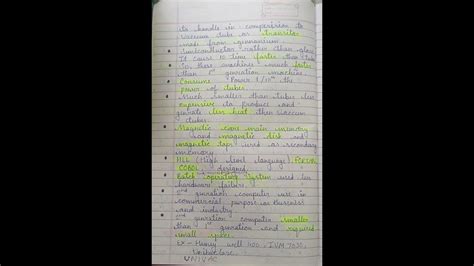 to handle in comparision to
vaccum tube as transistor
made from germanium
• semiconductor rather than glass
It cause 10 time faster than tubes
• So, these machines much faster
than 1st generation machine.
• Consume Power 1/10th the
power of tubes
• Much smaller than tubes less
expensive to produce and
generate less heat than vaccum
tubes.
• Magnetic core main memory
and magnetic disk and
magnetic tape used as secondary
memory
• HLL (High level language)
COBOL designed.
• Batch operating system used for
hardware failure.
• 2nd generation computer use in
commercial purpose in Business
and industry.
• 2nd generation computer smaller
than 1st generation and required
small space.
Ex - Honey well 400,
UNIVAC